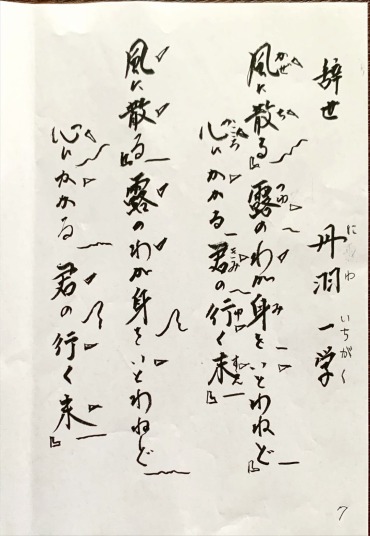 辞世
丹羽一学
にわ いちがく
風に散る露のわが身をいとわねど
かぜ ち つゆ み
心にかかる君の行く末
こころ きみ ゆ すえ
風に散る露のわが身をいとわねど
心にかかる君の行く末
7